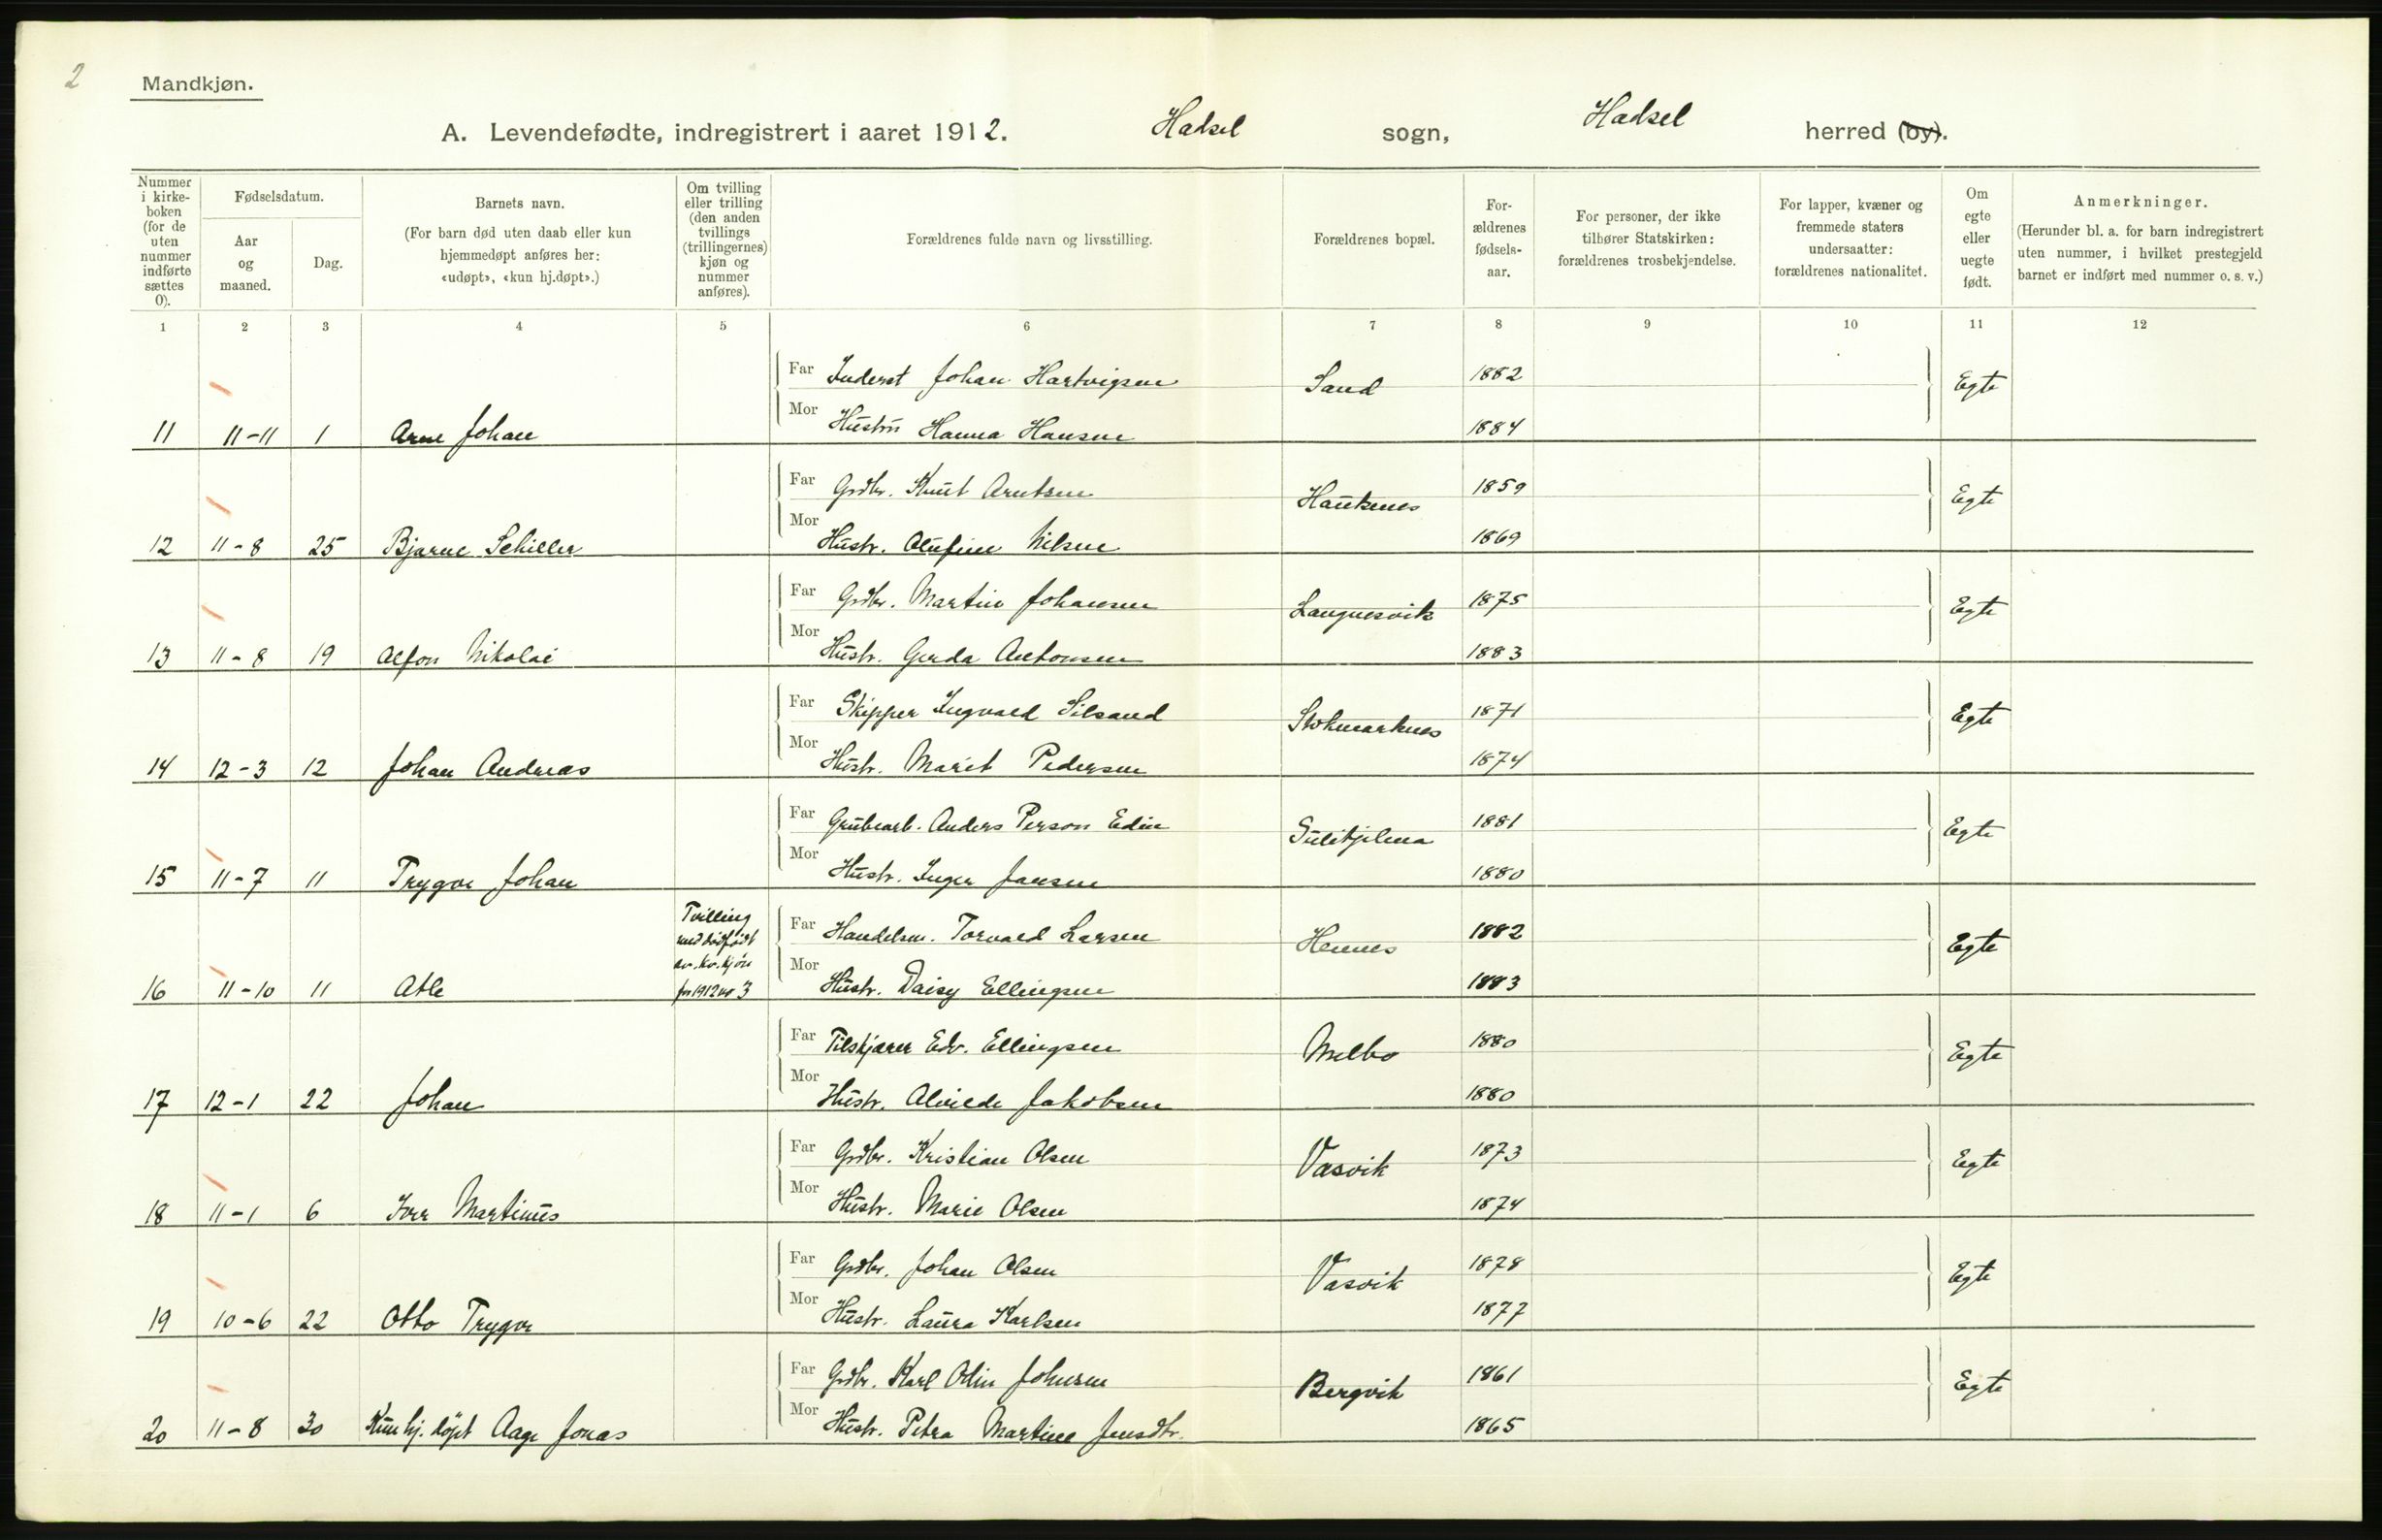 2
Mandkjøn.
A. Levendefødte, indregistrert i aaret 1912. Hadsel sogn, Hadsel herred (by).
Nummer i kirke-boken (for de uten nummer indførte sættes 0).
Fødselsdatum.
Aar og maaned.
Dag.
Barnets navn.
(For barn død uten daab eller kun hjemmedøpt anføres her: «udøpt», «kun hj.døpt».)
Om tvilling eller trilling (den anden tvillings (trillingernes) kjøn og nummer anføres).
Forældrenes fulde navn og livsstilling.
Forældrenes bopæl.
For-ældrenes fødsels-aar.
For personer, der ikke tilhører Statskirken: forældrenes trosbekjendelse.
For lapper, kvæner og fremmede staters undersaatter: forældrenes nationalitet.
Om egte eller uegte født.
Anmerkninger.
(Herunder bl. a. for barn indregistrert uten nummer, i hvilket prestegjeld barnet er indført med nummer o. s. v.)
1 2 3 4 5 6 7 8 9 10 11 12
Far Inderst Johan Hartvigsen Sand 1882 Egte
Mor Hustru Hanna Hansen 1884
11 11-11 1 Arne Johan
Far Grdbr. Knut Arntsen Haukenes 1859 Egte
Mor Hustr. Olufine Nilsen 1869
12 11-8 25 Bjarne Schiller
Far Grdbr. Martin Johansen Langnesvik 1875 Egte
Mor Hustr. Gerda Antonsen 1883
13 11-8 19 Alfon Nikolai
Far Skipper Ingvald Silsand Stokmarknes 1871 Egte
Mor Hustr. Marit Pedersen 1874
14 12-3 12 Johan Andreas
Far Grubearb. Anders Person Edin Sulitjelma 1881 Egte
Mor Hustr. Inger Jansen 1880
15 11-7 11 Trygve Johan
Tvilling med dødfødt av kv.kjøn for 1912 nr 3
Far Handelsm. Torvald Larsen Hennes 1882 Egte
Mor Hustr. Daisy Ellingsen 1883
16 11-10 11 Atle
Far Tilskjærer Edv. Ellingsen Melbo 1880 Egte
Mor Hustr. Alvilde Jakobsen 1880
17 12-1 22 Johan
Far Grdbr. Kristian Olsen Vasvik 1873 Egte
Mor Hustr. Marie Olsen 1874
18 11-1 6 Ivar Martinus
Far Grdbr. Johan Olsen Vasvik 1878 Egte
Mor Hustr. Laura Karlsen 1877
19 10-6 22 Otto Trygve
Far Grdbr. Karl Odin Johnsen Bergvik 1861 Egte
Mor Hustr. Petra Martine Jensdtr. 1865
20 11-8 30 Kun hj. døpt Aage Jonas